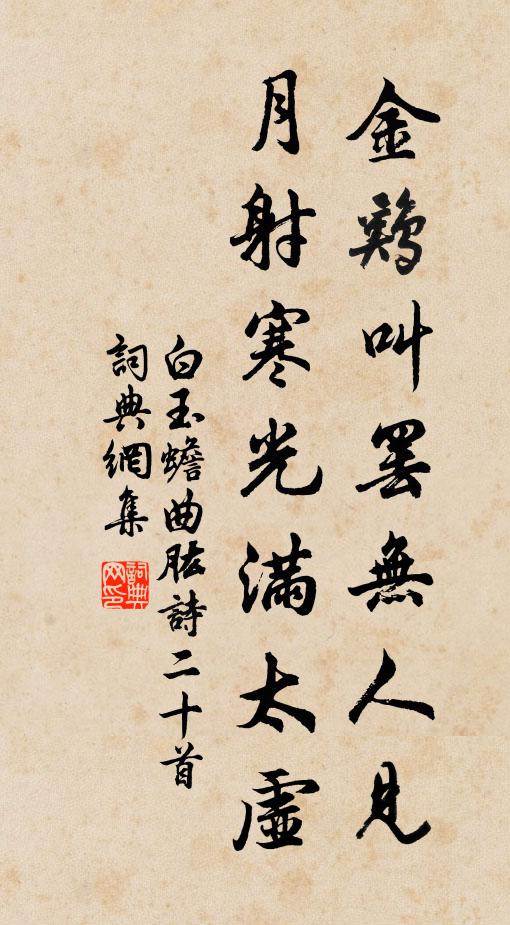 金鷄叫罷無人見
月射寒光滿太虛
白玉蟾曲肱詩二十首
詞典網集
詞典网印